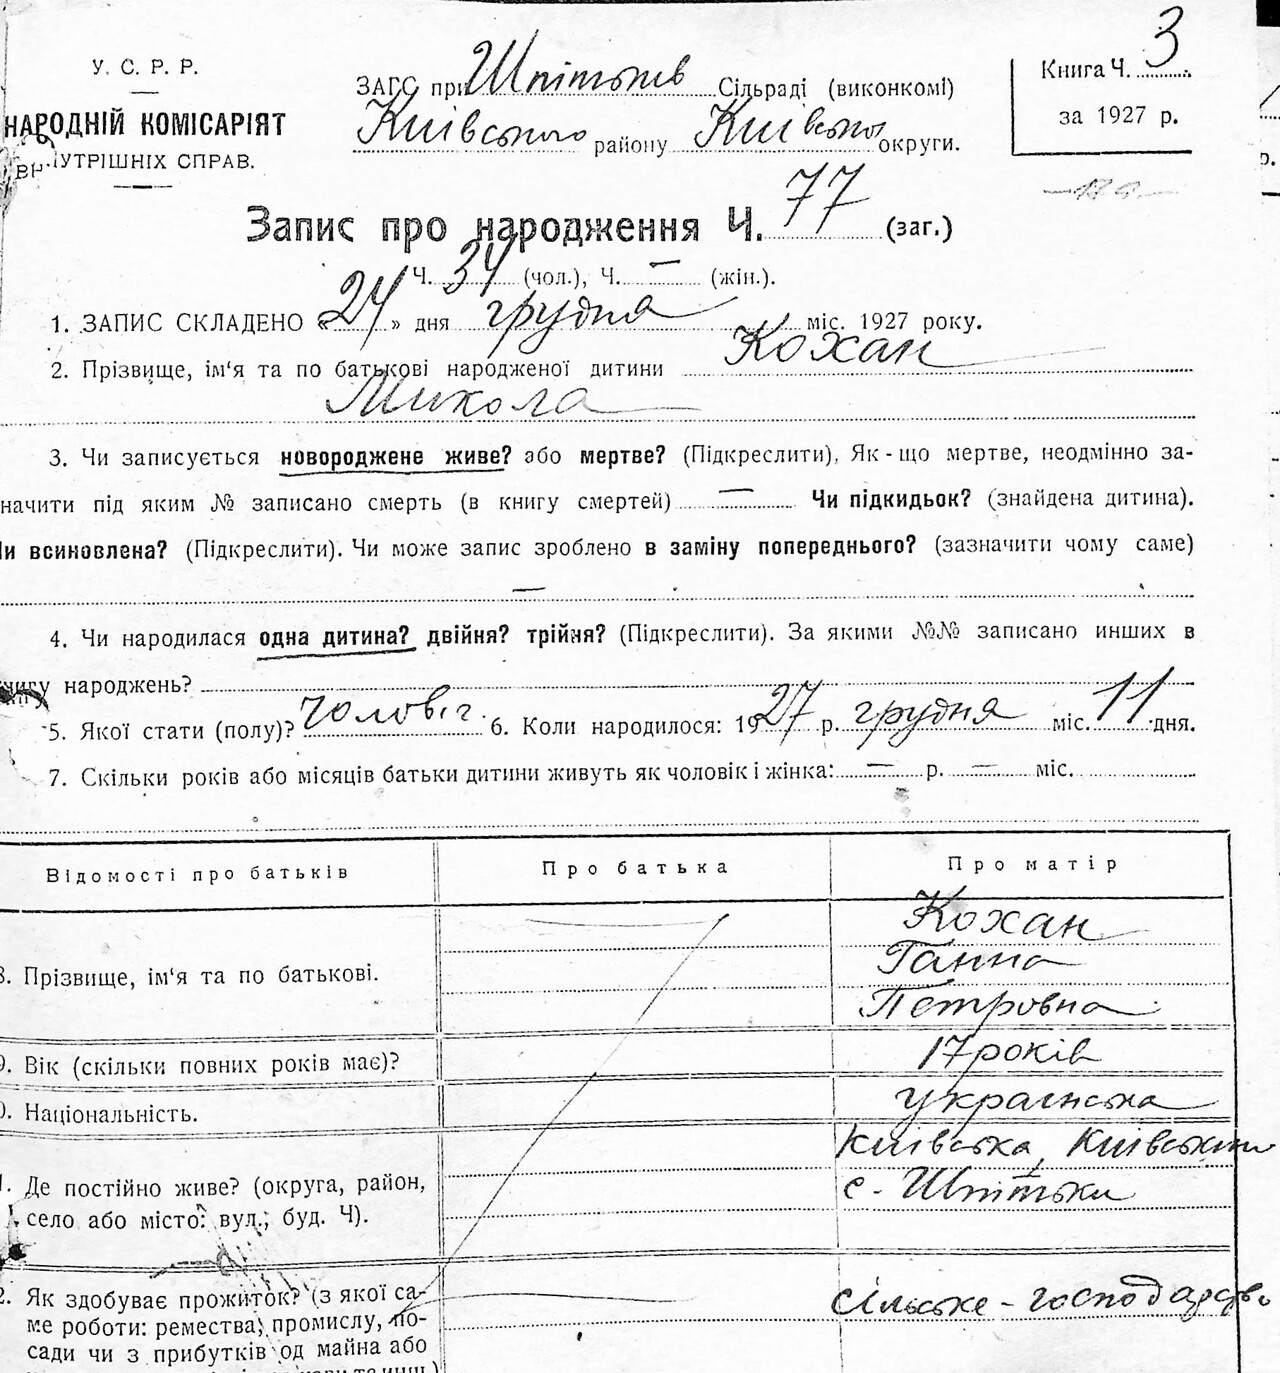 У. С. Р. Р.
НАРОДНІЙ КОМІСАРІЯТ
ВНУТРІШНІХ СПРАВ.
ЗАГС при Шпітьків Сільраді (виконкомі)
Київського району Київської округи.
Книга Ч. 3
за 1927 р.
Запис про народження Ч. 77 (заг.)
Ч. 34 (чол.), Ч. — (жін.).
1. ЗАПИС СКЛАДЕНО «24» дня грудня міс. 1927 року.
2. Прізвище, ім‘я та по батькові народженої дитини Кохан
Микола
3. Чи записується новороджене живе? або мертве? (Підкреслити). Як-що мертве, неодмінно за-
начити під яким № записано смерть (в книгу смертей) — Чи підкидьок? (знайдена дитина).
Чи всиновлена? (Підкреслити). Чи може запис зроблено в заміну попереднього? (зазначити чому саме)
—
4. Чи народилася одна дитина? двійня? трійня? (Підкреслити). За якими №№ записано инших в
книгу народжень?
5. Якої стати (полу)? чоловіч. 6. Коли народилося: 1927 р. грудня міс. 11 дня.
7. Скільки років або місяців батьки дитини живуть як чоловік і жінка: — р. — міс.
Відомості про батьків
Про батька
Про матір
8. Прізвище, ім‘я та по батькові.
Кохан
Ганна
Петровна
9. Вік (скільки повних років має)?
17 років
0. Національність.
українська
1. Де постійно живе? (округа, район,
село або місто: вул., буд. Ч).
Київська, Київський
с. Шпітьки
2. Як здобуває прожиток? (з якої са-
ме роботи: ремества, промислу, по-
сади чи з прибутків од майна або
сільське-господарство